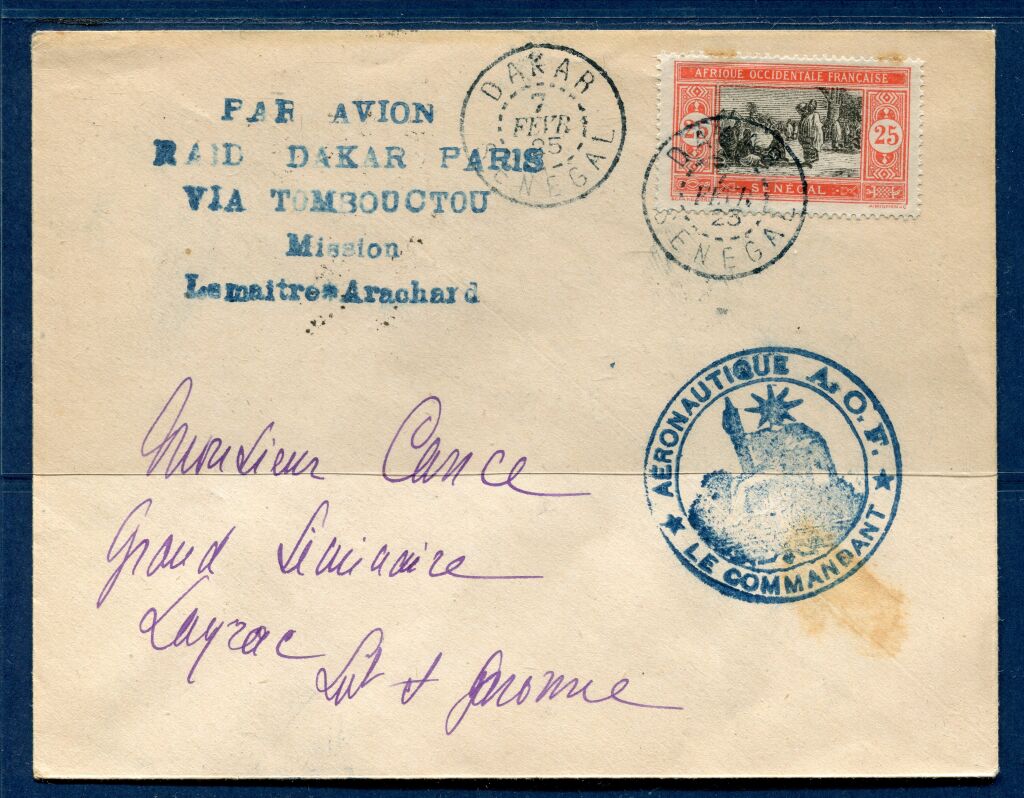 PAR AVION
RAID DAKAR PARIS
VIA TOMBOUCTOU
Mission
Lemaitre=Arachard
DAKAR
7
FEVR
25
SENEGAL
AFRIQUE OCCIDENTALE FRANÇAISE
25 25
SÉNÉGAL
DAKAR
7
FEVR
25
SENEGAL
AÉRONAUTIQUE A.O.F.
LE COMMANDANT
Monsieur Cance
Grand Séminaire
Layrac
Lot & Garonne